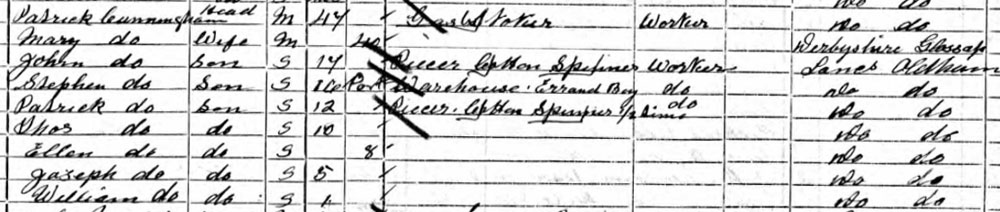 do do
Patrick Cunningham Head M 47 Gas Stoker Worker do do
Mary do Wife M 40 Derbyshire Glossop
John do Son S 17 Piecer Cotton Spinner Worker Lancs Oldham
Stephen do Son S Warehouse Errand Boy do do do
Patrick do Son S 12 Piecer Cotton Spinner 1/2 time do do do
Thos do do S 10 do do
Ellen do do S 8 do do
Joseph do do S 5 do do
William do do S 1 do do